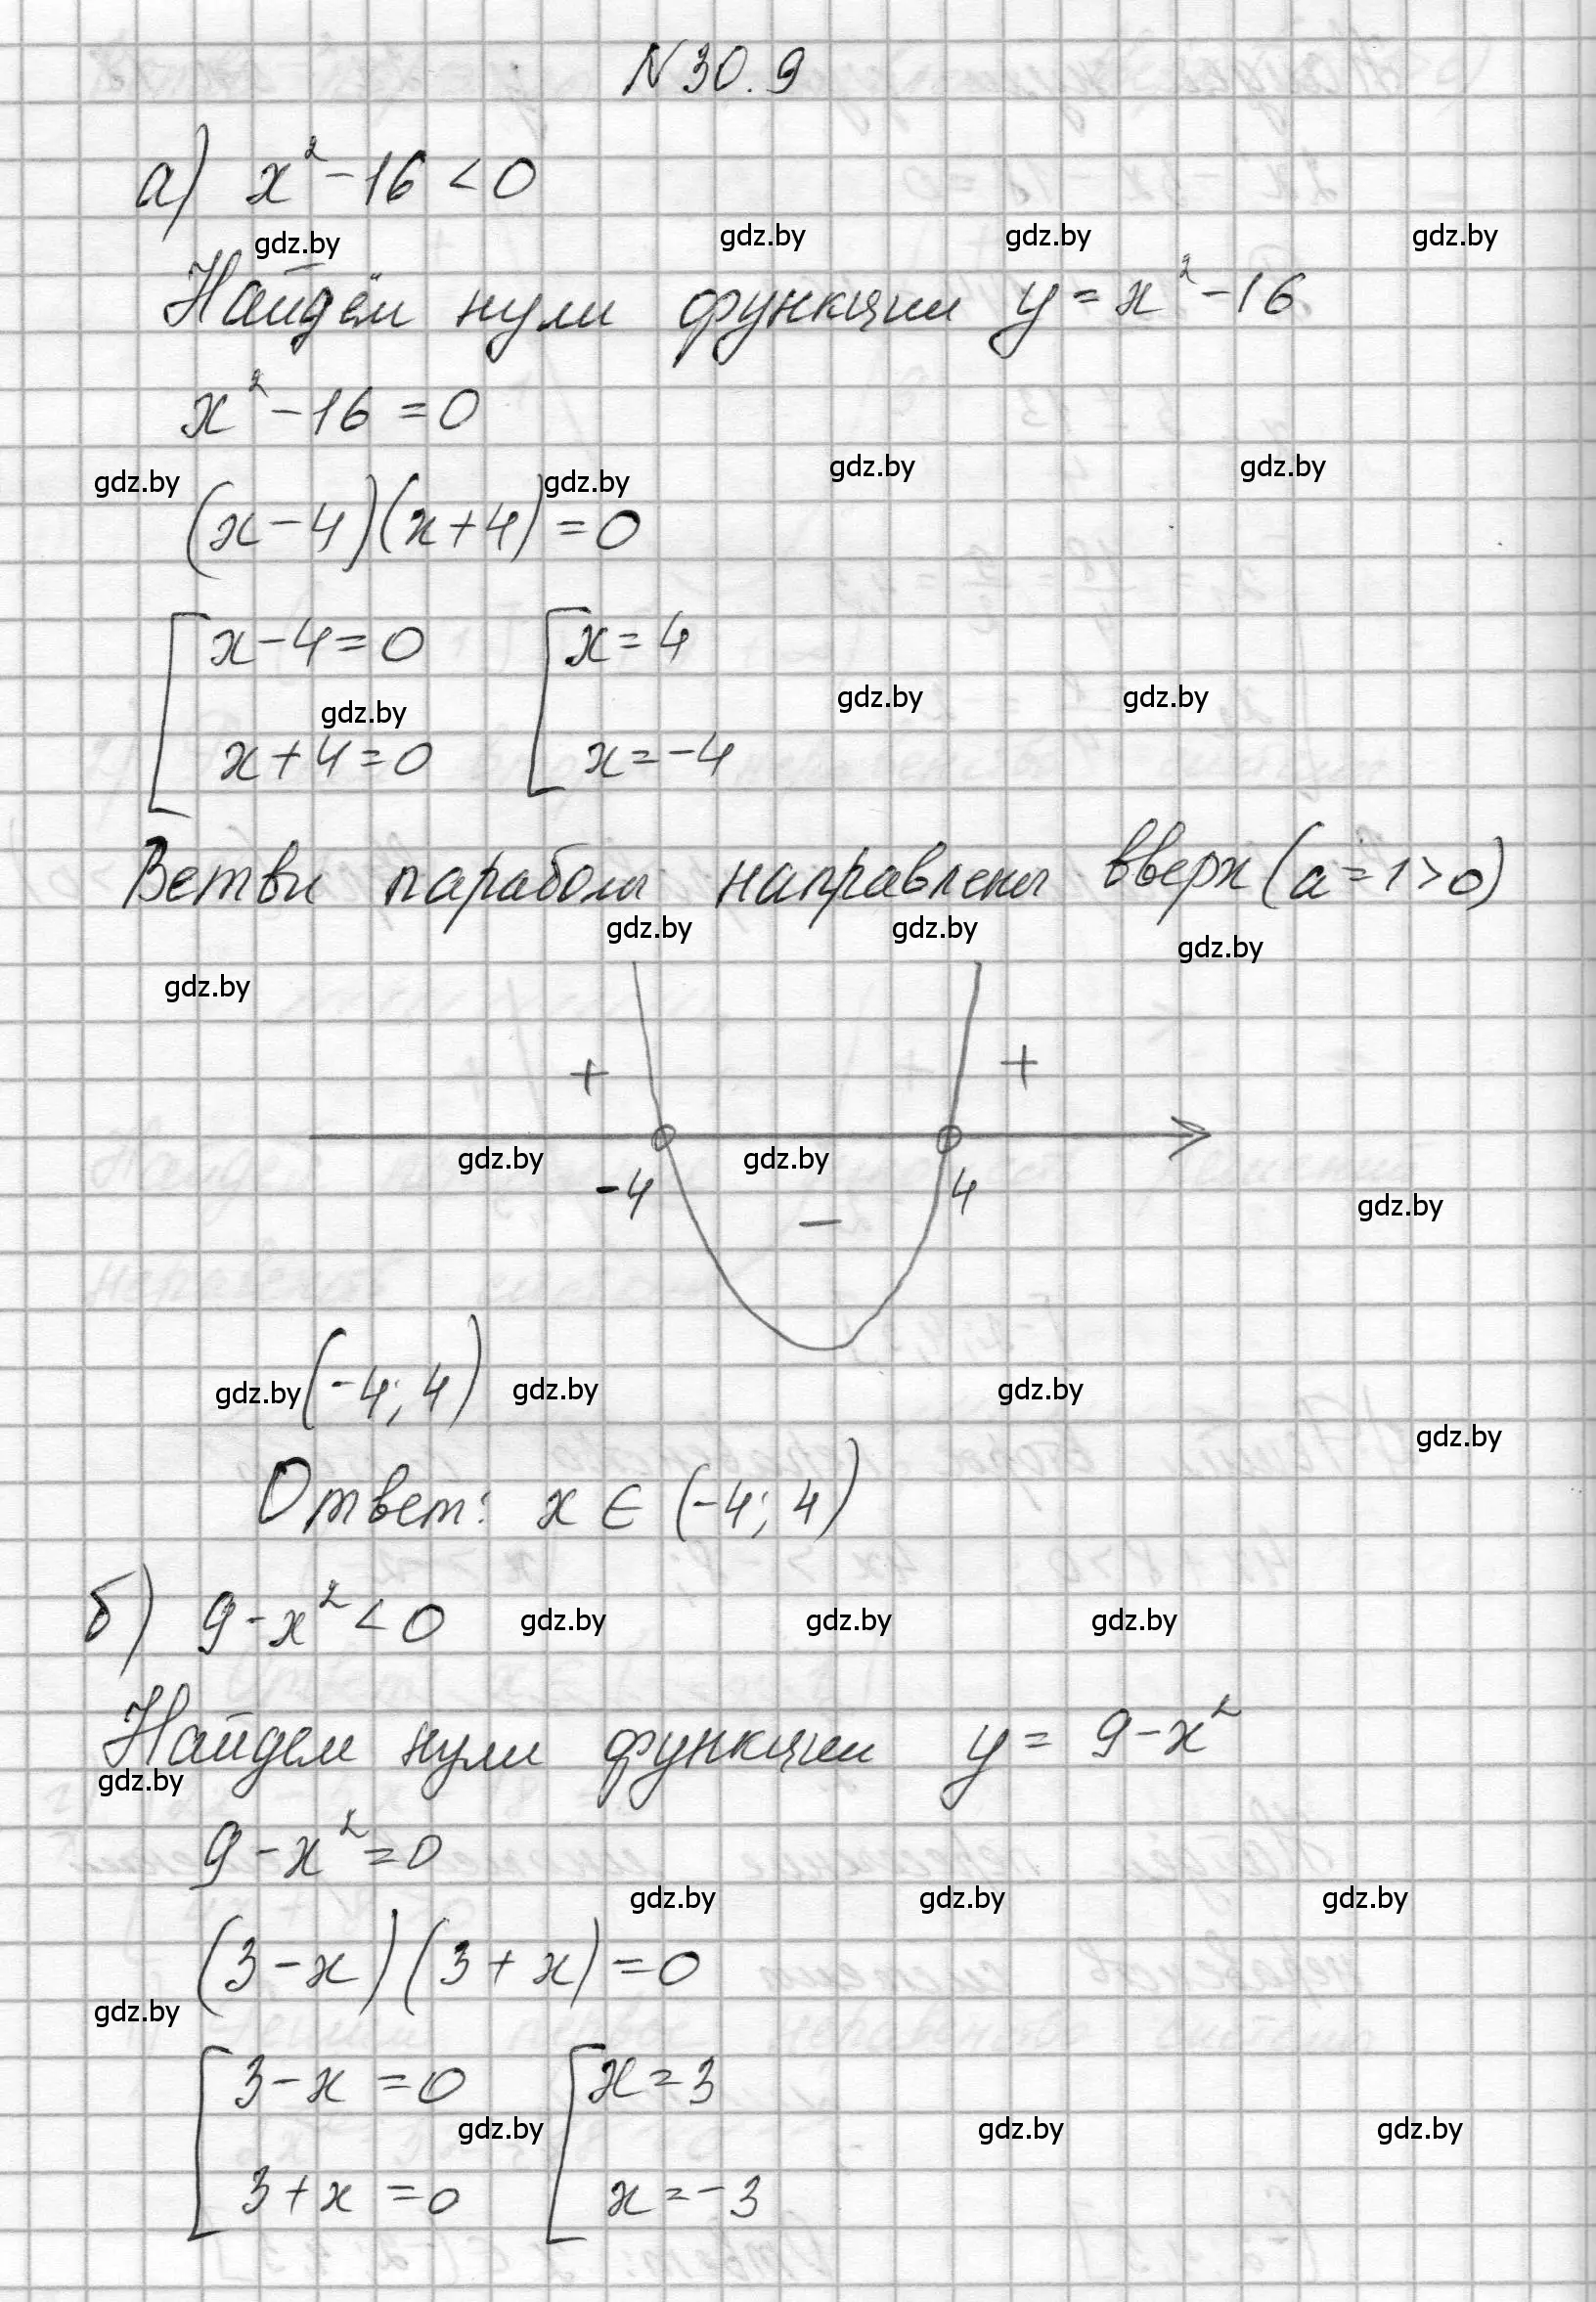 N 30.9
а) x² - 16 < 0
gdz.by gdz.by gdz.by gdz.by
Найдём нули функции y = x² - 16
x² - 16 = 0
gdz.by gdz.by gdz.by gdz.by
(x - 4)(x + 4) = 0
[ x - 4 = 0 [ x = 4
gdz.by gdz.by gdz.by
x + 4 = 0 x = -4
Ветви параболы направлены вверх (a = 1 > 0)
gdz.by gdz.by gdz.by gdz.by
+ +
gdz.by gdz.by
-4 4
gdz.by
−
(-4; 4)
gdz.by gdz.by gdz.by
gdz.by
Ответ: x ∈ (-4; 4)
б) 9 - x² < 0
gdz.by gdz.by gdz.by
Найдем нули функции y = 9 - x²
gdz.by
9 - x² = 0
gdz.by gdz.by gdz.by
(3 - x)(3 + x) = 0
gdz.by
[ 3 - x = 0 [ x = 3
gdz.by gdz.by gdz.by
3 + x = 0 x = -3